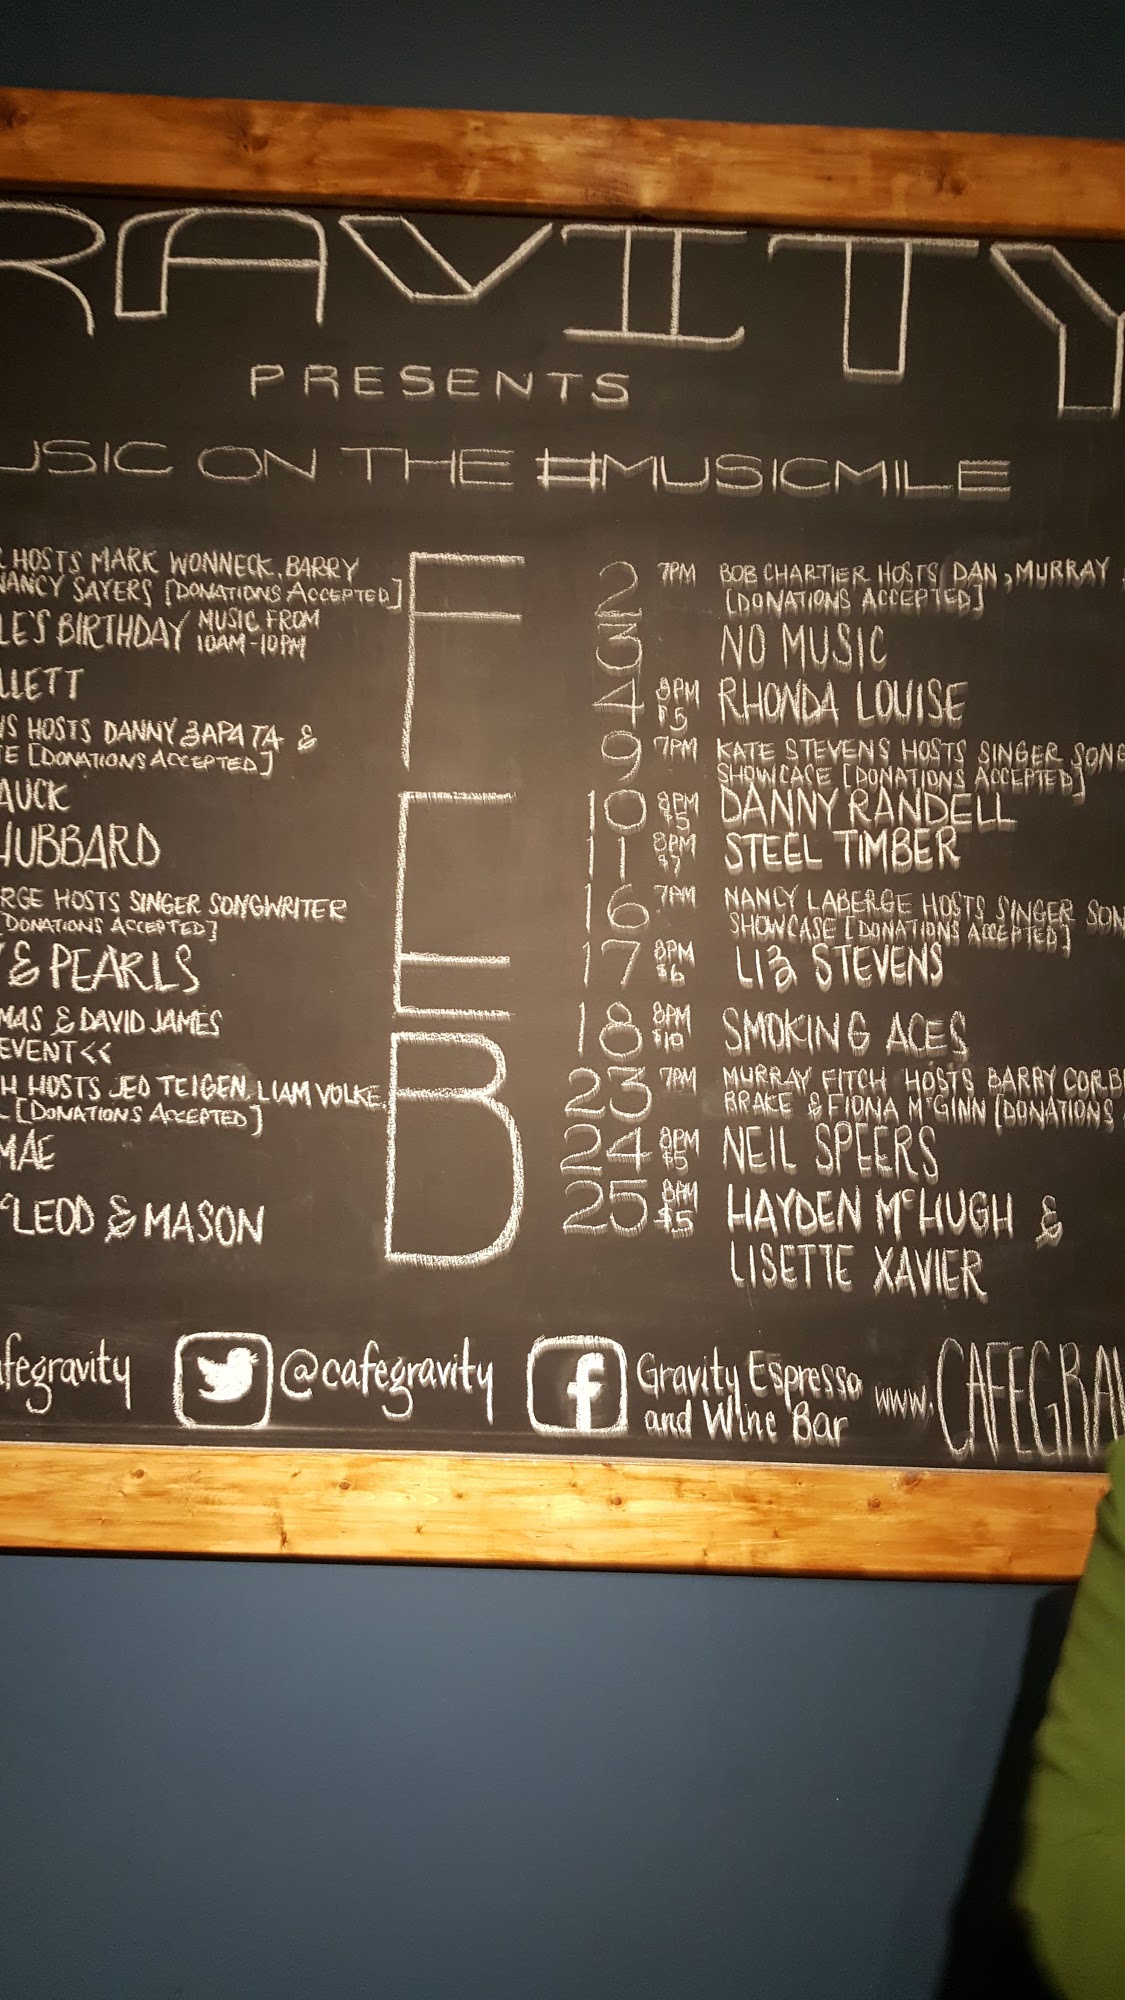 RAVITY
PRESENTS
USIC ON THE #MUSICMILE
HOSTS MARK WONNECK, BARRY
NANCY SAYERS [DONATIONS ACCEPTED]
LE'S BIRTHDAY MUSIC FROM
10AM-10PM
LLETT
NS HOSTS DANNY ZAPATA &
TE [DONATIONS ACCEPTED]
AUCK
HUBBARD
RGE HOSTS SINGER SONGWRITER
[DONATIONS ACCEPTED]
Y & PEARLS
MAS & DAVID JAMES
EVENT<<
H HOSTS JED TEIGEN, LIAM VOLKE,
L [DONATIONS ACCEPTED]
MAE
McLEOD & MASON
FEB
2 7PM BOB CHARTIER HOSTS DAN, MURRAY
[DONATIONS ACCEPTED]
3 NO MUSIC
4 8PM $5 RHONDA LOUISE
9 7PM KATE STEVENS HOSTS SINGER SONG
SHOWCASE [DONATIONS ACCEPTED]
10 8PM $5 DANNY RANDELL
11 8PM $7 STEEL TIMBER
16 7PM NANCY LABERGE HOSTS SINGER SON
SHOWCASE [DONATIONS ACCEPTED]
17 8PM $6 LIZ STEVENS
18 8PM $10 SMOKING ACES
23 7PM MURRAY FITCH HOSTS BARRY CORB
BRAKE & FIONA McGINN [DONATIONS
24 8PM $5 NEIL SPEERS
25 8PM $5 HAYDEN McHUGH &
LISETTE XAVIER
afegravity @cafegravity f Gravity Espresso
and Wine Bar
www.CAFEGRAV